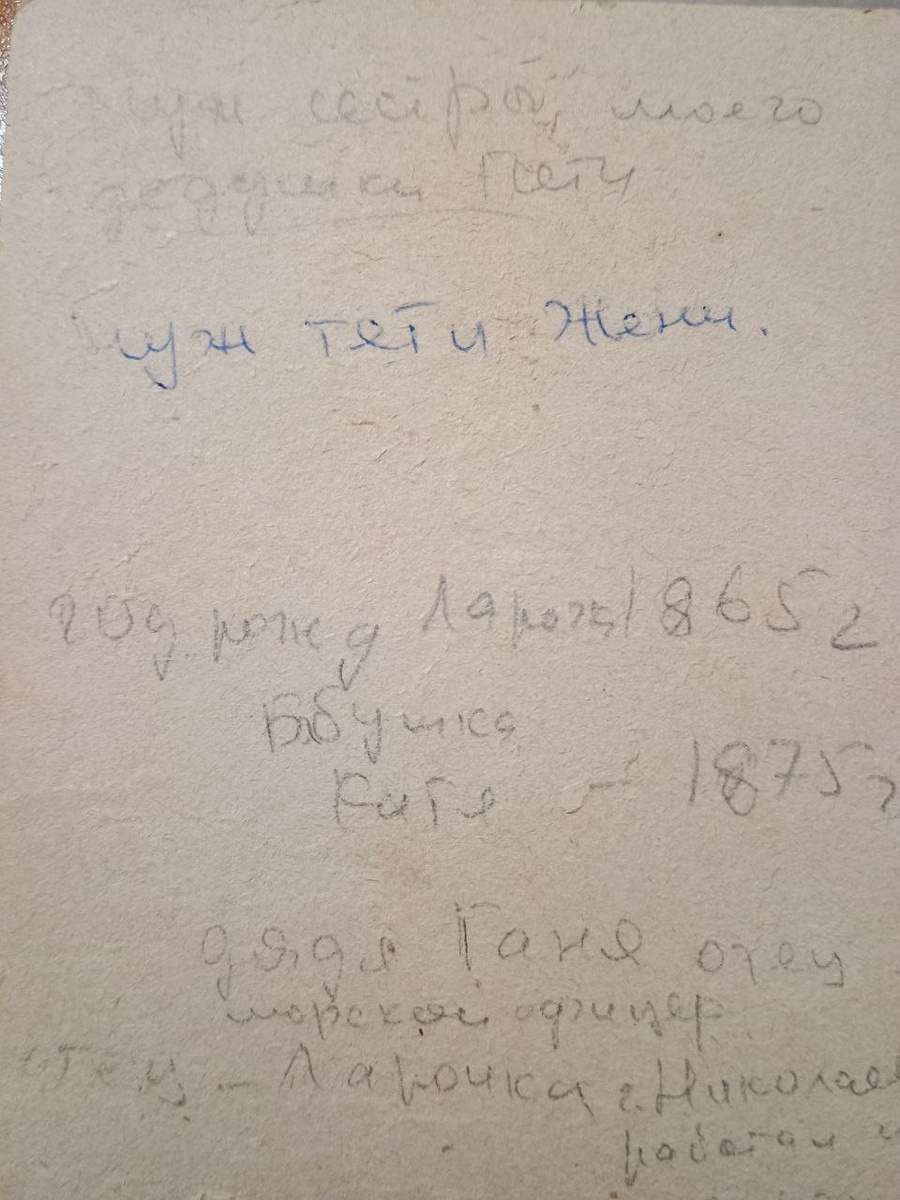 муж сестры моего
дедушки Пети
муж тети Жени.
год рожд 1865 г
Бабушка
Катя — 1875 г
дядя Ганя отец
морской офицер
отец – Ларочка г. Николаев
работал